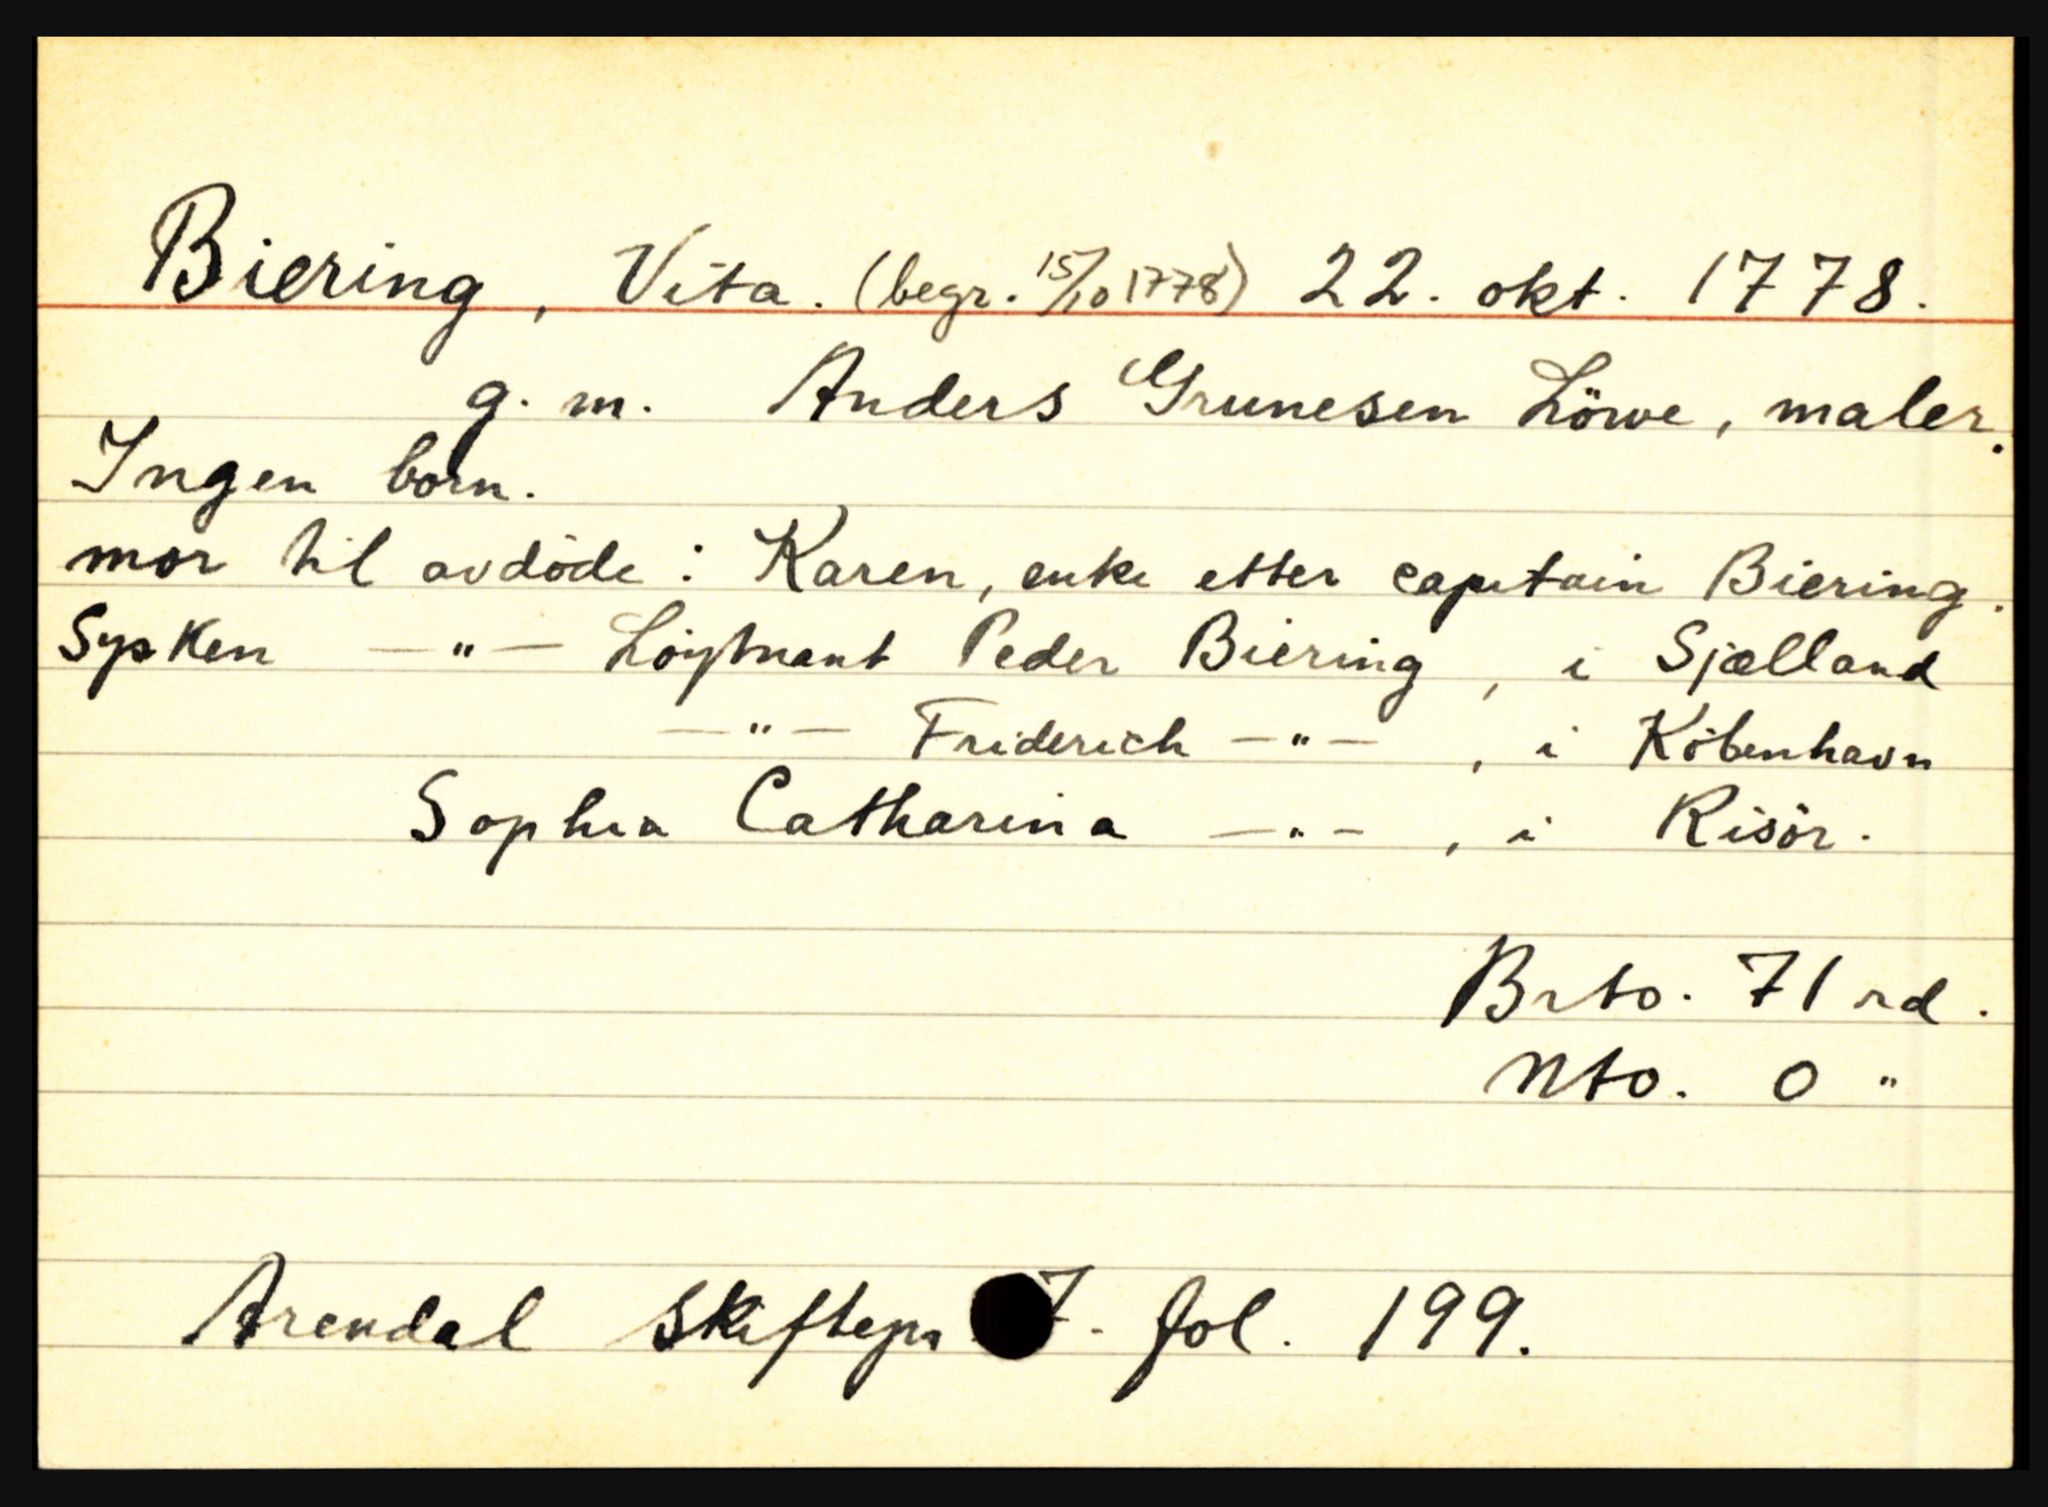 Biering, Vita. (begr. 15/10 1778) 22. okt. 1778.
g. m. Anders Grunesen Löwe, maler.
Ingen born.
mor til avdöde: Karen, enke etter capitain Biering.
Sysken —"— Löytnant Peder Biering, i Sjælland
—"— Friderich —"—, i Köbenhavn
Sophia Catharina —"—, i Risör.
Brto. 71 rd.
Nto. 0 "
Arendal skiftepr 7. fol. 199.